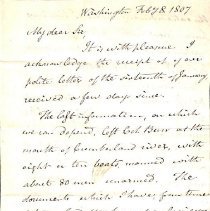 Washington Feby 8. 1807
My dear Sir,
It is with pleasure I
acknowledge the receipt of your
polite letter of the sixteenth of January
received a few days since.
The last information, on which
we can depend, left Colo. Burr at the
mouth of Cumberland river, with
eight or ten boats, manned with
about 80 men unarmed. The
documents which I have